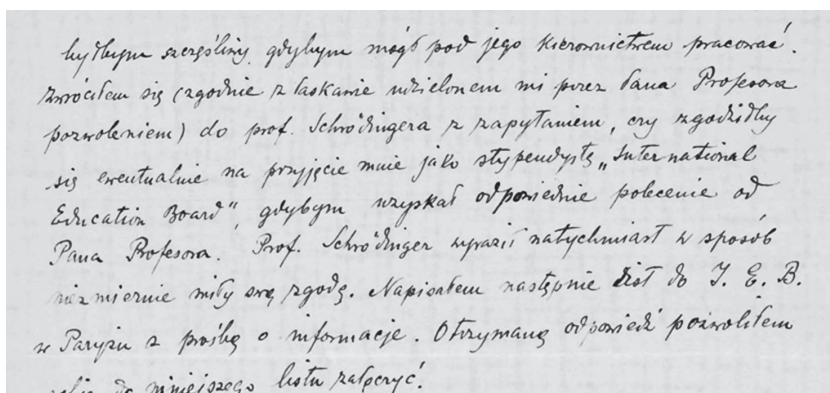 byłbym szczęśliwy gdybym mógł pod jego kierownictwem pracować.
Zwróciłem się (zgodnie z łaskawie udzielonem mi przez Pana Profesora
pozwoleniem) do prof. Schrödingera z zapytaniem, czy zgodziłby
się ewentualnie na przyjęcie mnie jako stypendystę „International
Education Board", gdybym uzyskał odpowiednie polecenie od
Pana Profesora. Prof. Schrödinger wyraził natychmiast w sposób
niezmiernie miły swą zgodę. Napisałem następnie list do I. E. B.
w Paryżu z prośbą o informacje. Otrzymaną odpowiedź pozwoliłem
sobie do niniejszego listu załączyć.